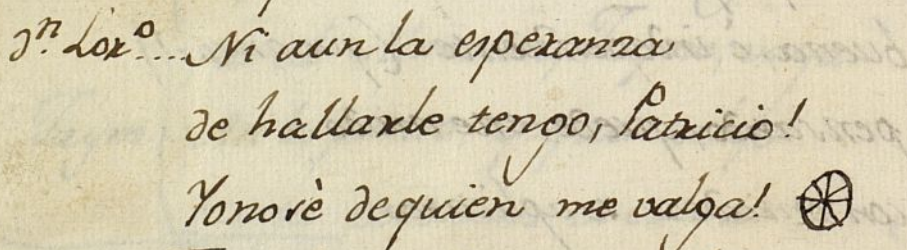 Dⁿ. Lorº.... Ni aun la esperanza
de hallarle tengo, Patricio!
Yonosè dequien me valga!